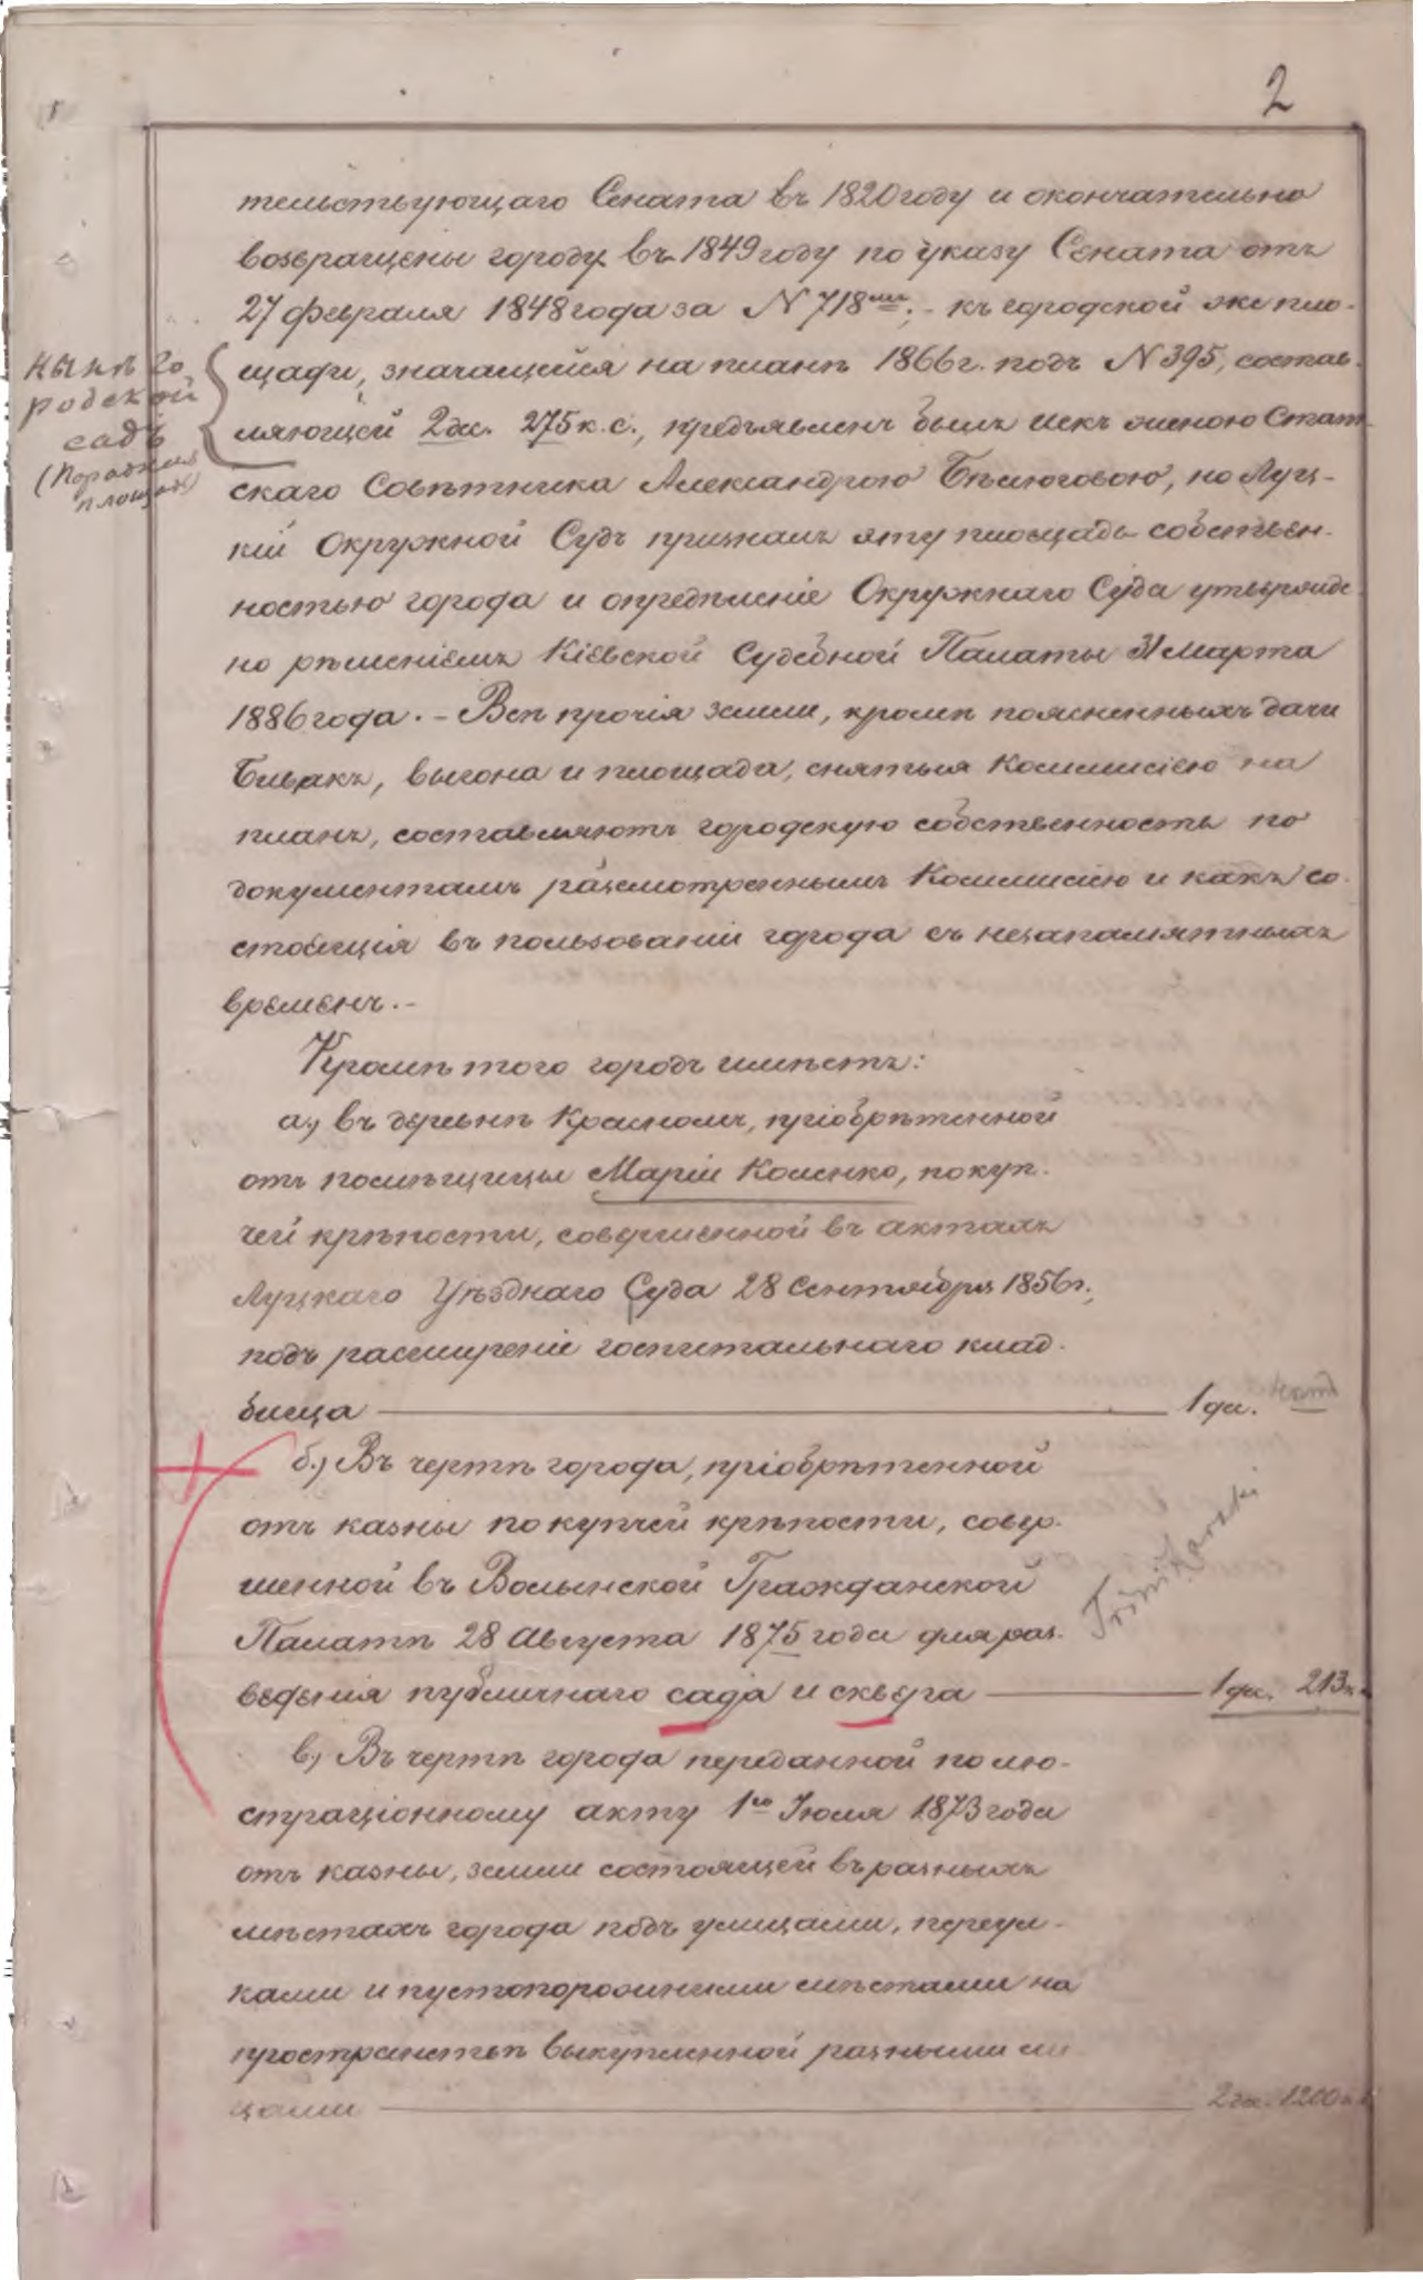 2
тельствующаго Сената въ 1820 году и окончательно
возвращены городу въ 1849 году по указу Сената отъ
27 февраля 1848 года за N 718мъ; - къ городской же пло-
щади, значащейся на планѣ 1866 г. подъ N 395, состав-
ляющей 2 дес. 275 к. с., предъявленъ былъ искъ женою Стат-
скаго Совѣтника Александрою Бѣлоговою, но Луц-
кій Окружной Судъ призналъ эту площадь собствен-
ностью города и опредѣленіе Окружнаго Суда утвержде-
но рѣшеніемъ Кіевской Судебной Палаты 31 Марта
1886 года. - Всѣ прочія земли, кромѣ поясненныхъ дачи
Бивакъ, выгона и площади, снятыя Коммисіею на
планъ, составляютъ городскую собственность по
документамъ разсмотреннымъ Коммисіею и какъ со-
стоящія въ пользованіи города съ незапамятныхъ
временъ. -
Кромѣ того городъ имѣетъ:
а) въ деревнѣ Красномъ, пріобрѣтенной
отъ помѣщицы Маріи Коленко, по куп-
чей крѣпости, совершенной въ актахъ
Луцкаго Уѣзднаго Суда 28 Сентября 1856 г.,
подъ расширеніе госпитальнаго клад-
бища 1 дес.
б) Въ чертѣ города, пріобрѣтенной
отъ казны по купчей крѣпости, совер-
шенной въ Волынской Гражданской
Палатѣ 28 Августа 1875 года для раз-
веденія публичнаго сада и сквера 1 дес. 213 к.
в) Въ чертѣ города переданной по лю-
страціонному акту 1го Іюля 1873 года
отъ казны, земли состоящей въ разныхъ
мѣстахъ города подъ улицами, переул-
ками и пустопорожними мѣстами на
пространствѣ выкупленной разными ли-
цами 2 дес. 1200 к.
нынѣ го
родской
садъ
площадь)